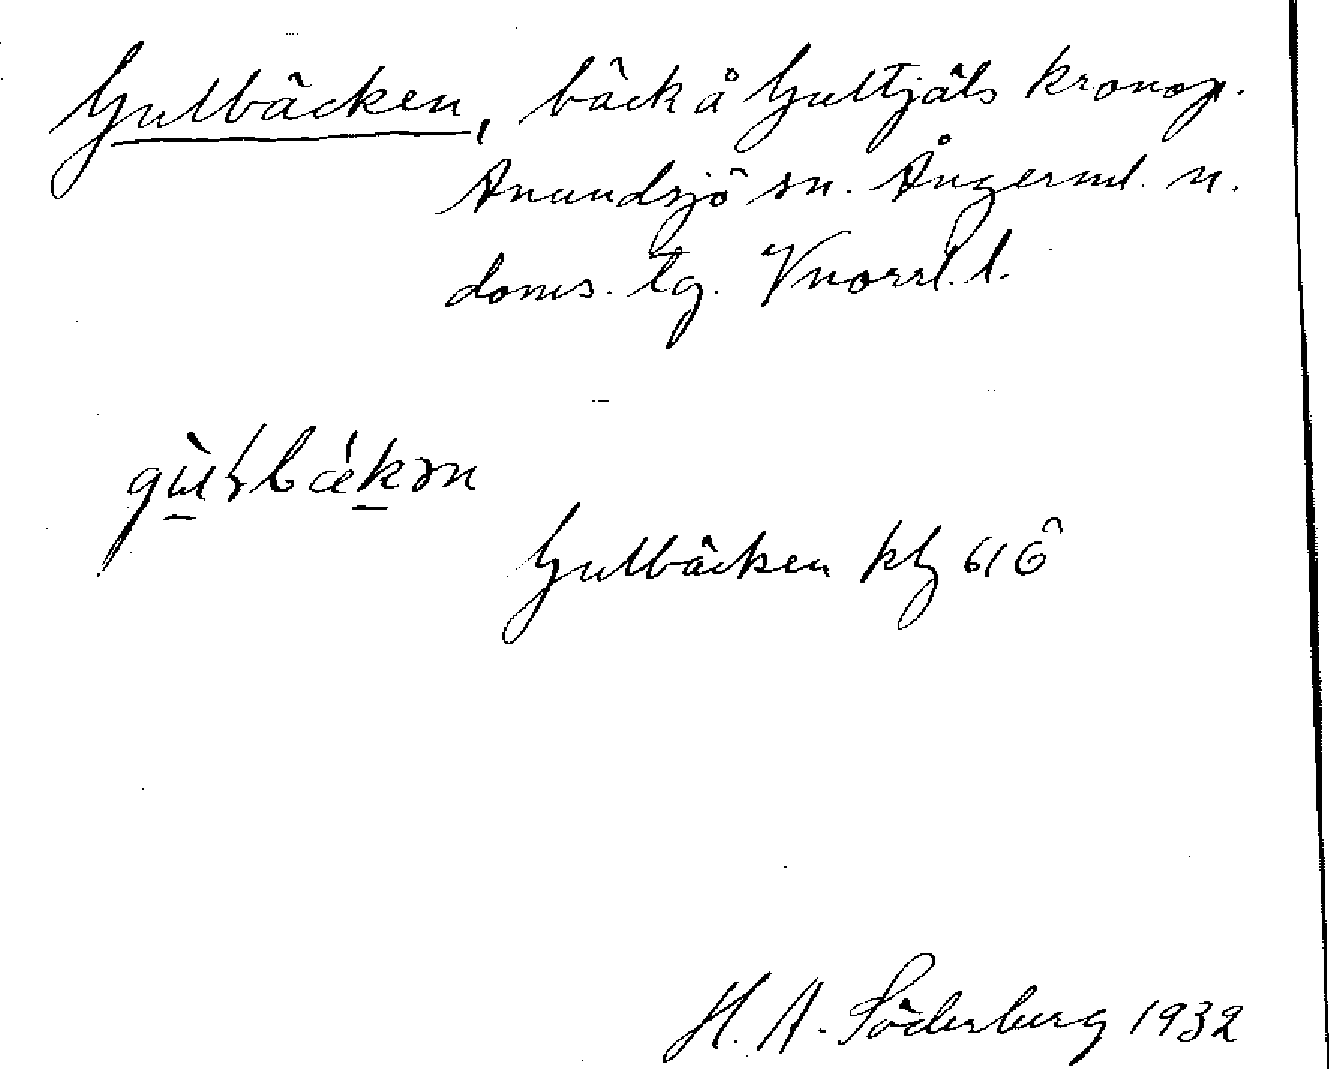 Gulbäcken, bäck å Gultjäls kronop.
Anundsjö sn. Ångerml. n.
doms. lg. Vnorrl. l.
Gulbäcken kbl 61 6
H. A. Söderberg 1932